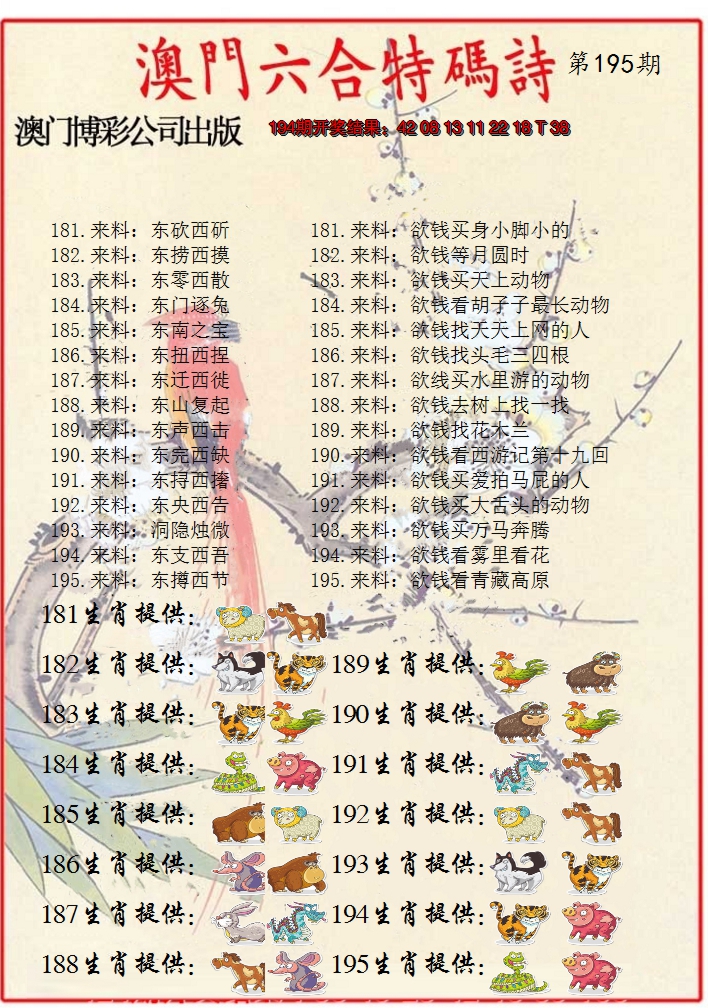 澳門六合特碼詩 第195期
澳门博彩公司出版 194期开奖结果：42 08 13 11 22 18 T 36
181.来料：东砍西斫 181.来料：欲钱买身小脚小的
182.来料：东捞西摸 182.来料：欲钱等月圆时
183.来料：东零西散 183.来料：欲钱买天上动物
184.来料：东门逐兔 184.来料：欲钱看胡子子最长动物
185.来料：东南之宝 185.来料：欲钱找天天上网的人
186.来料：东扭西捏 186.来料：欲钱找头毛三四根
187.来料：东迁西徙 187.来料：欲线买水里游的动物
188.来料：东山复起 188.来料：欲钱去树上找一找
189.来料：东声西击 189.来料：欲钱找花木兰
190.来料：东完西缺 190.来料：欲钱看西游记第十九回
191.来料：东挦西撦 191.来料：欲钱买爱拍马屁的人
192.来料：东央西告 192.来料：欲钱买大舌头的动物
193.来料：洞隐烛微 193.来料：欲钱买万马奔腾
194.来料：东支西吾 194.来料：欲钱看雾里看花
195.来料：东撙西节 195.来料：欲钱看青藏高原
181生肖提供：
182生肖提供： 189生肖提供：
183生肖提供： 190生肖提供：
184生肖提供： 191生肖提供：
185生肖提供： 192生肖提供：
186生肖提供： 193生肖提供：
187生肖提供： 194生肖提供：
188生肖提供： 195生肖提供：